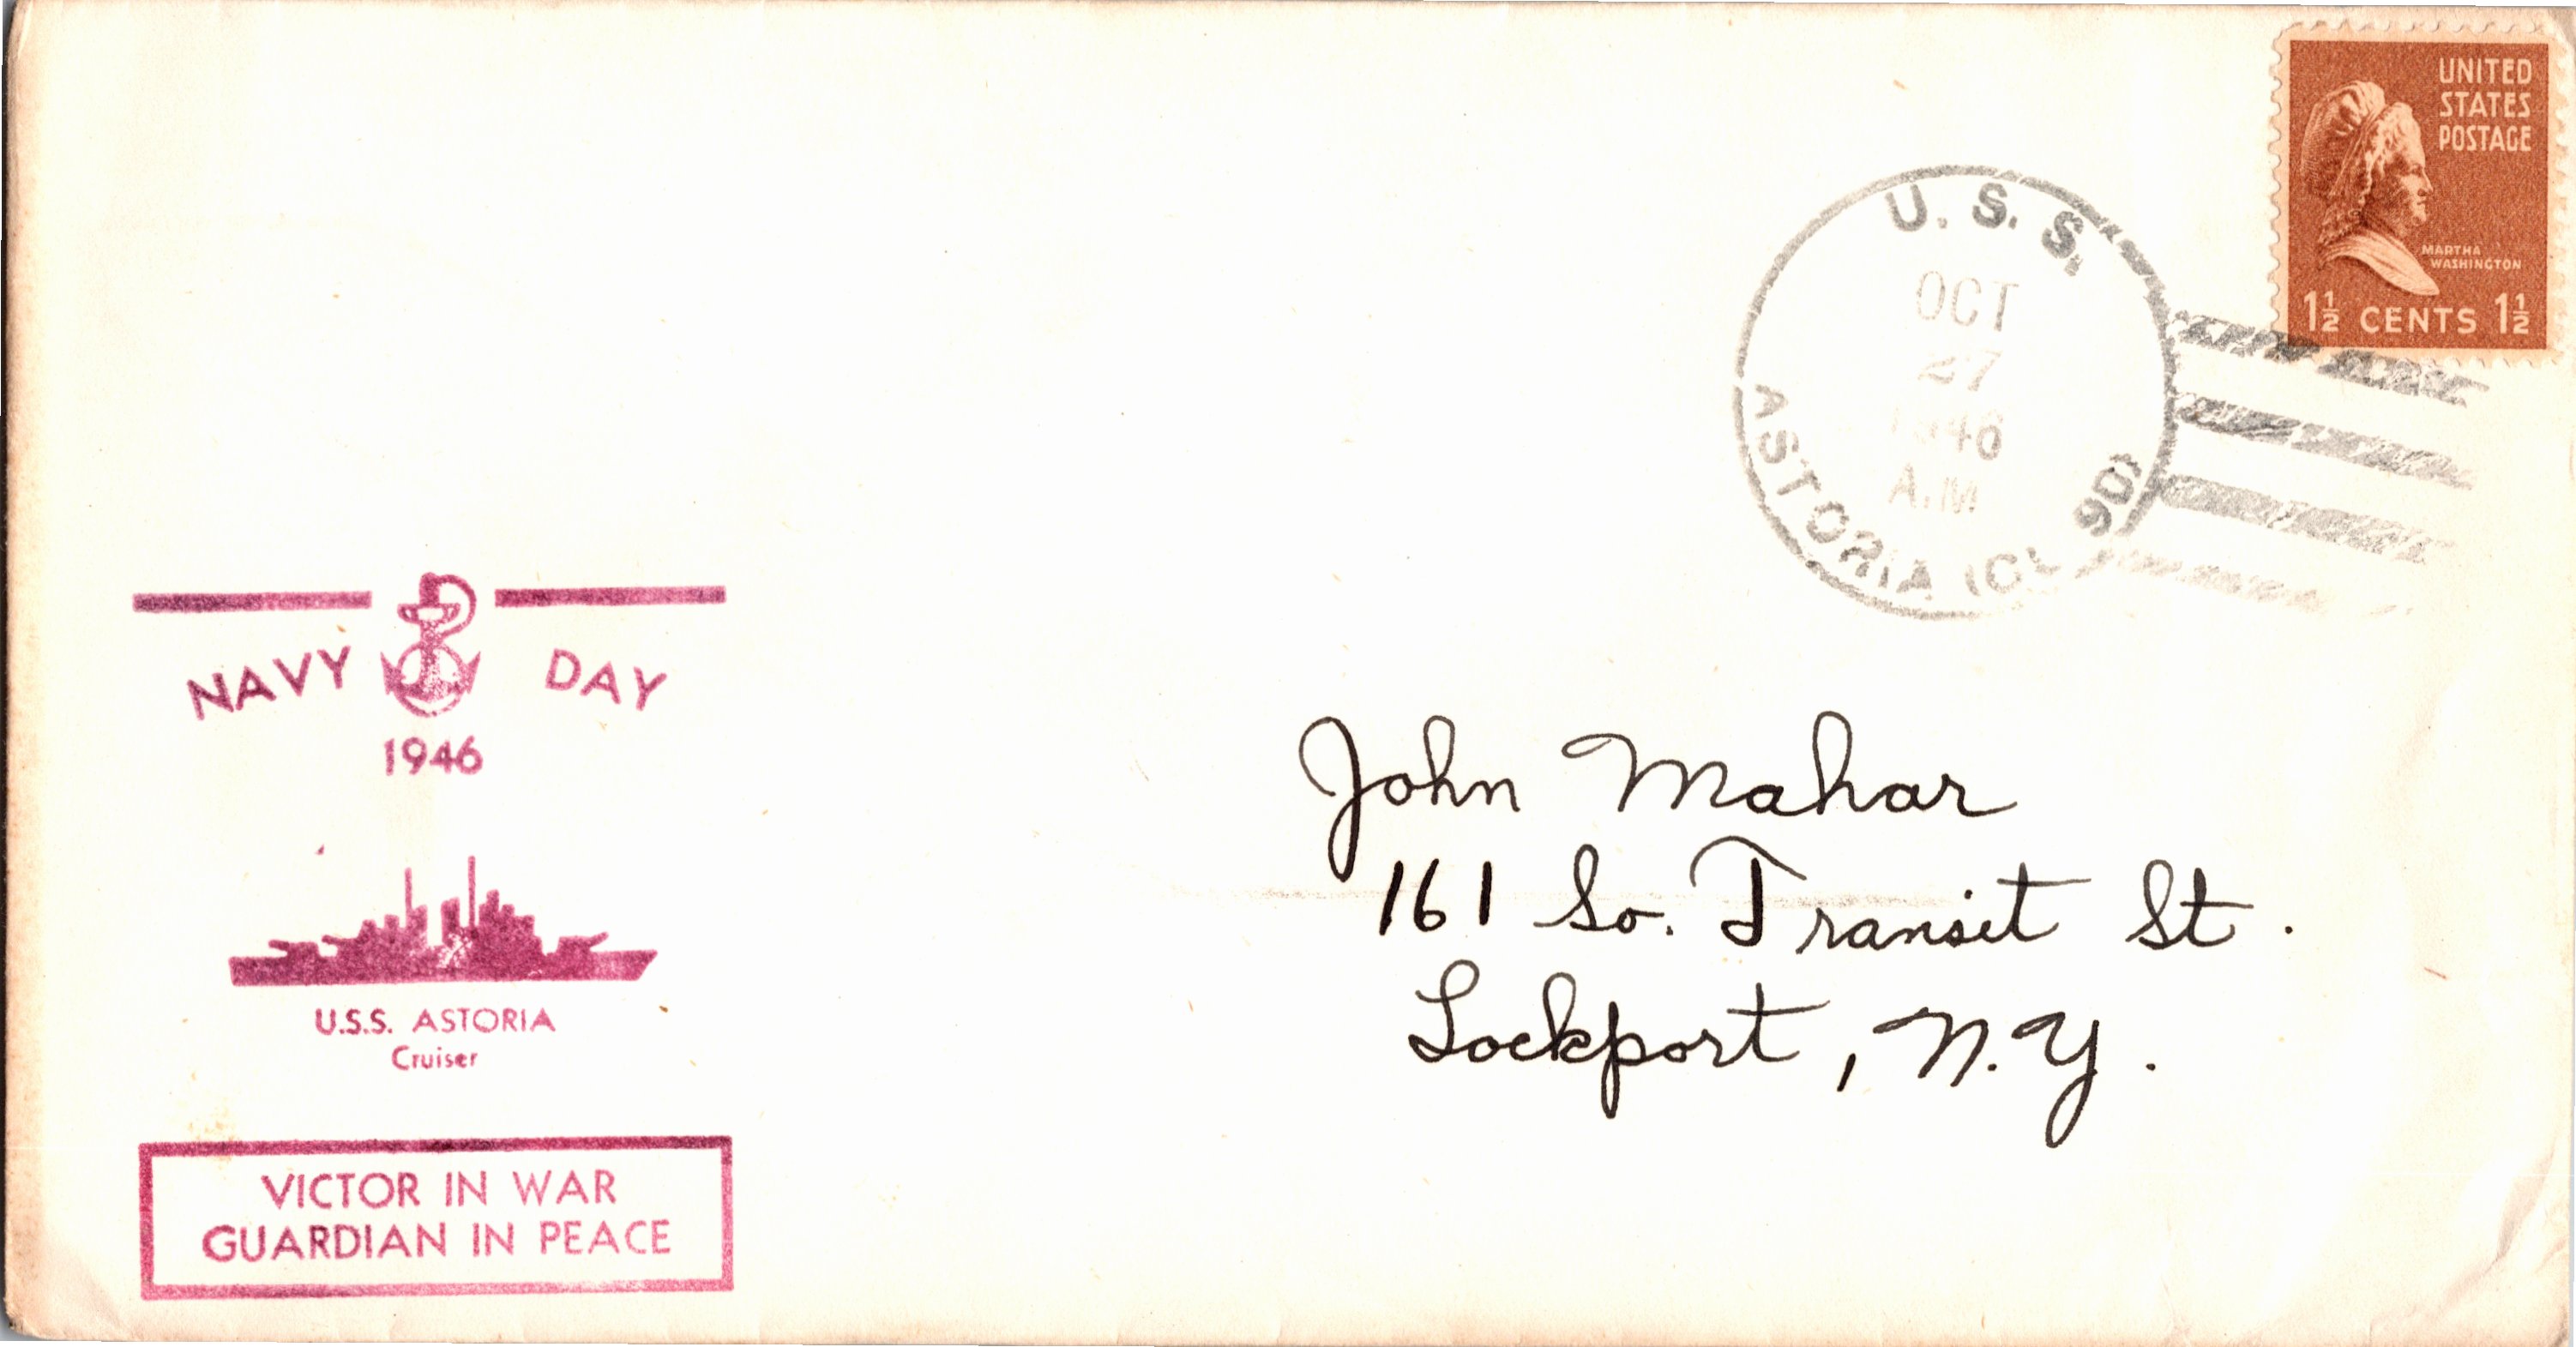 UNITED
STATES
POSTAGE
MARTHA
WASHINGTON
1½ CENTS 1½
U. S. S.
OCT
27
1946
A.M
ASTORIA (CL 90)
NAVY DAY
1946
U.S.S. ASTORIA
Cruiser
VICTOR IN WAR
GUARDIAN IN PEACE
John Mahar
161 So. Transit St.
Lockport, N.Y.